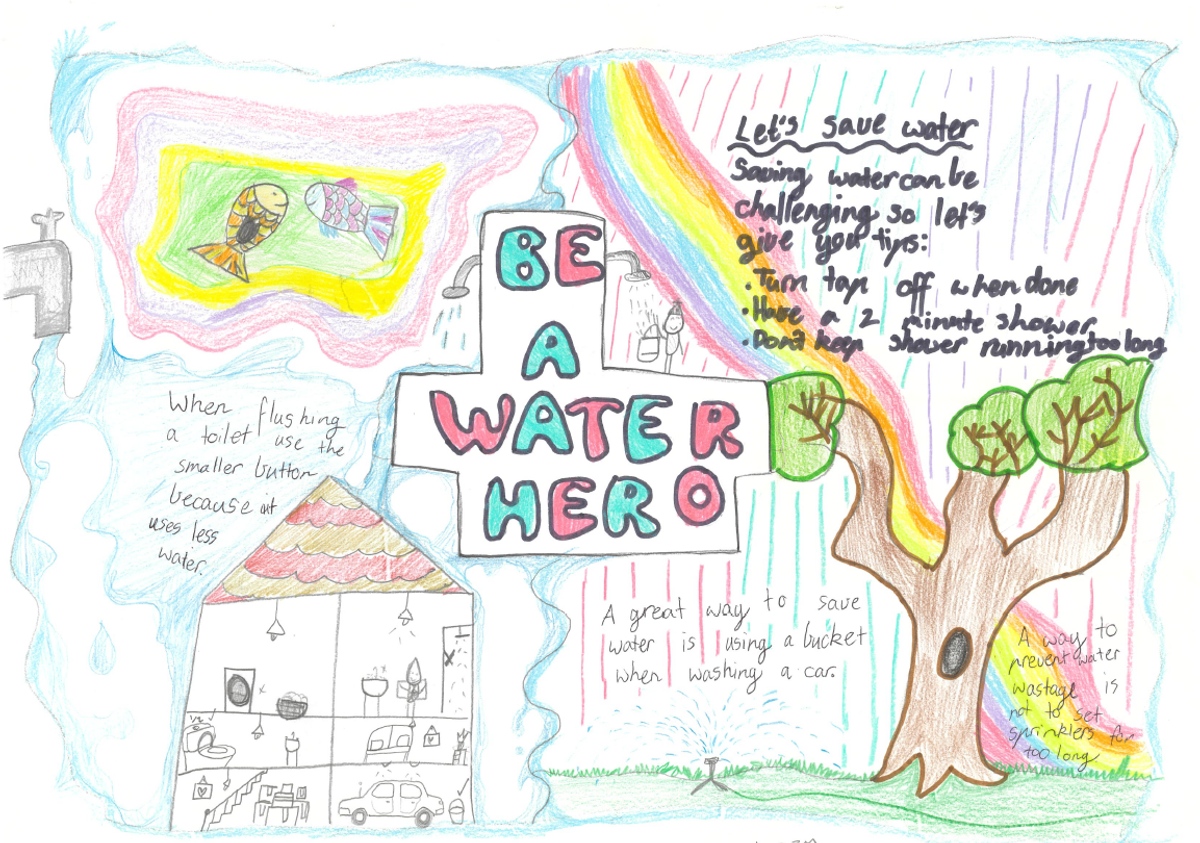 Let's save water
Saving water can be
challenging so let's
give you tips:
• Turn tap off when done
• Have a 2 minute shower
• Don't keep shower running too long
BE
A
WATER
HERO
When flushing
a toilet use the
smaller button
because it
uses less
water.
A great way to save
water is using a bucket
when washing a car.
A way to
prevent water
wastage is
not to set
sprinklers for
too long